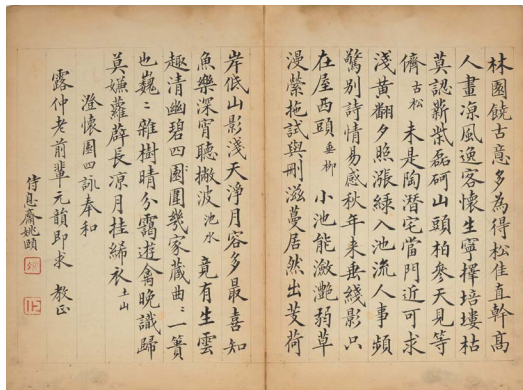 林園饒古意多為得松佳直幹高
人畫涼風逸客懷生寧擇培塿枯
莫認薪柴磊砢山頭柏參天見等
儕 古松 未是陶潛宅當門近可求
淺黃翻夕照漲綠入池流人事頻
驚別詩情易感秋年来垂綫影只
在屋西頭 垂柳 小池能瀲灧弱草
漫縈拖試與刪滋蔓居然出芰荷
岸低山影淺天淨月容多最喜知
魚樂深宵聽撇波 池水 竟有生雲
趣清幽碧四圍幾家藏曲〻一簣
也巍〻雜樹晴分靄遊禽晚識歸
莫嫌蘿薜長涼月挂絺衣 土山
澄懷園四詠奉和
露仲老前輩元韻即求 教正
侍息齋姚頤